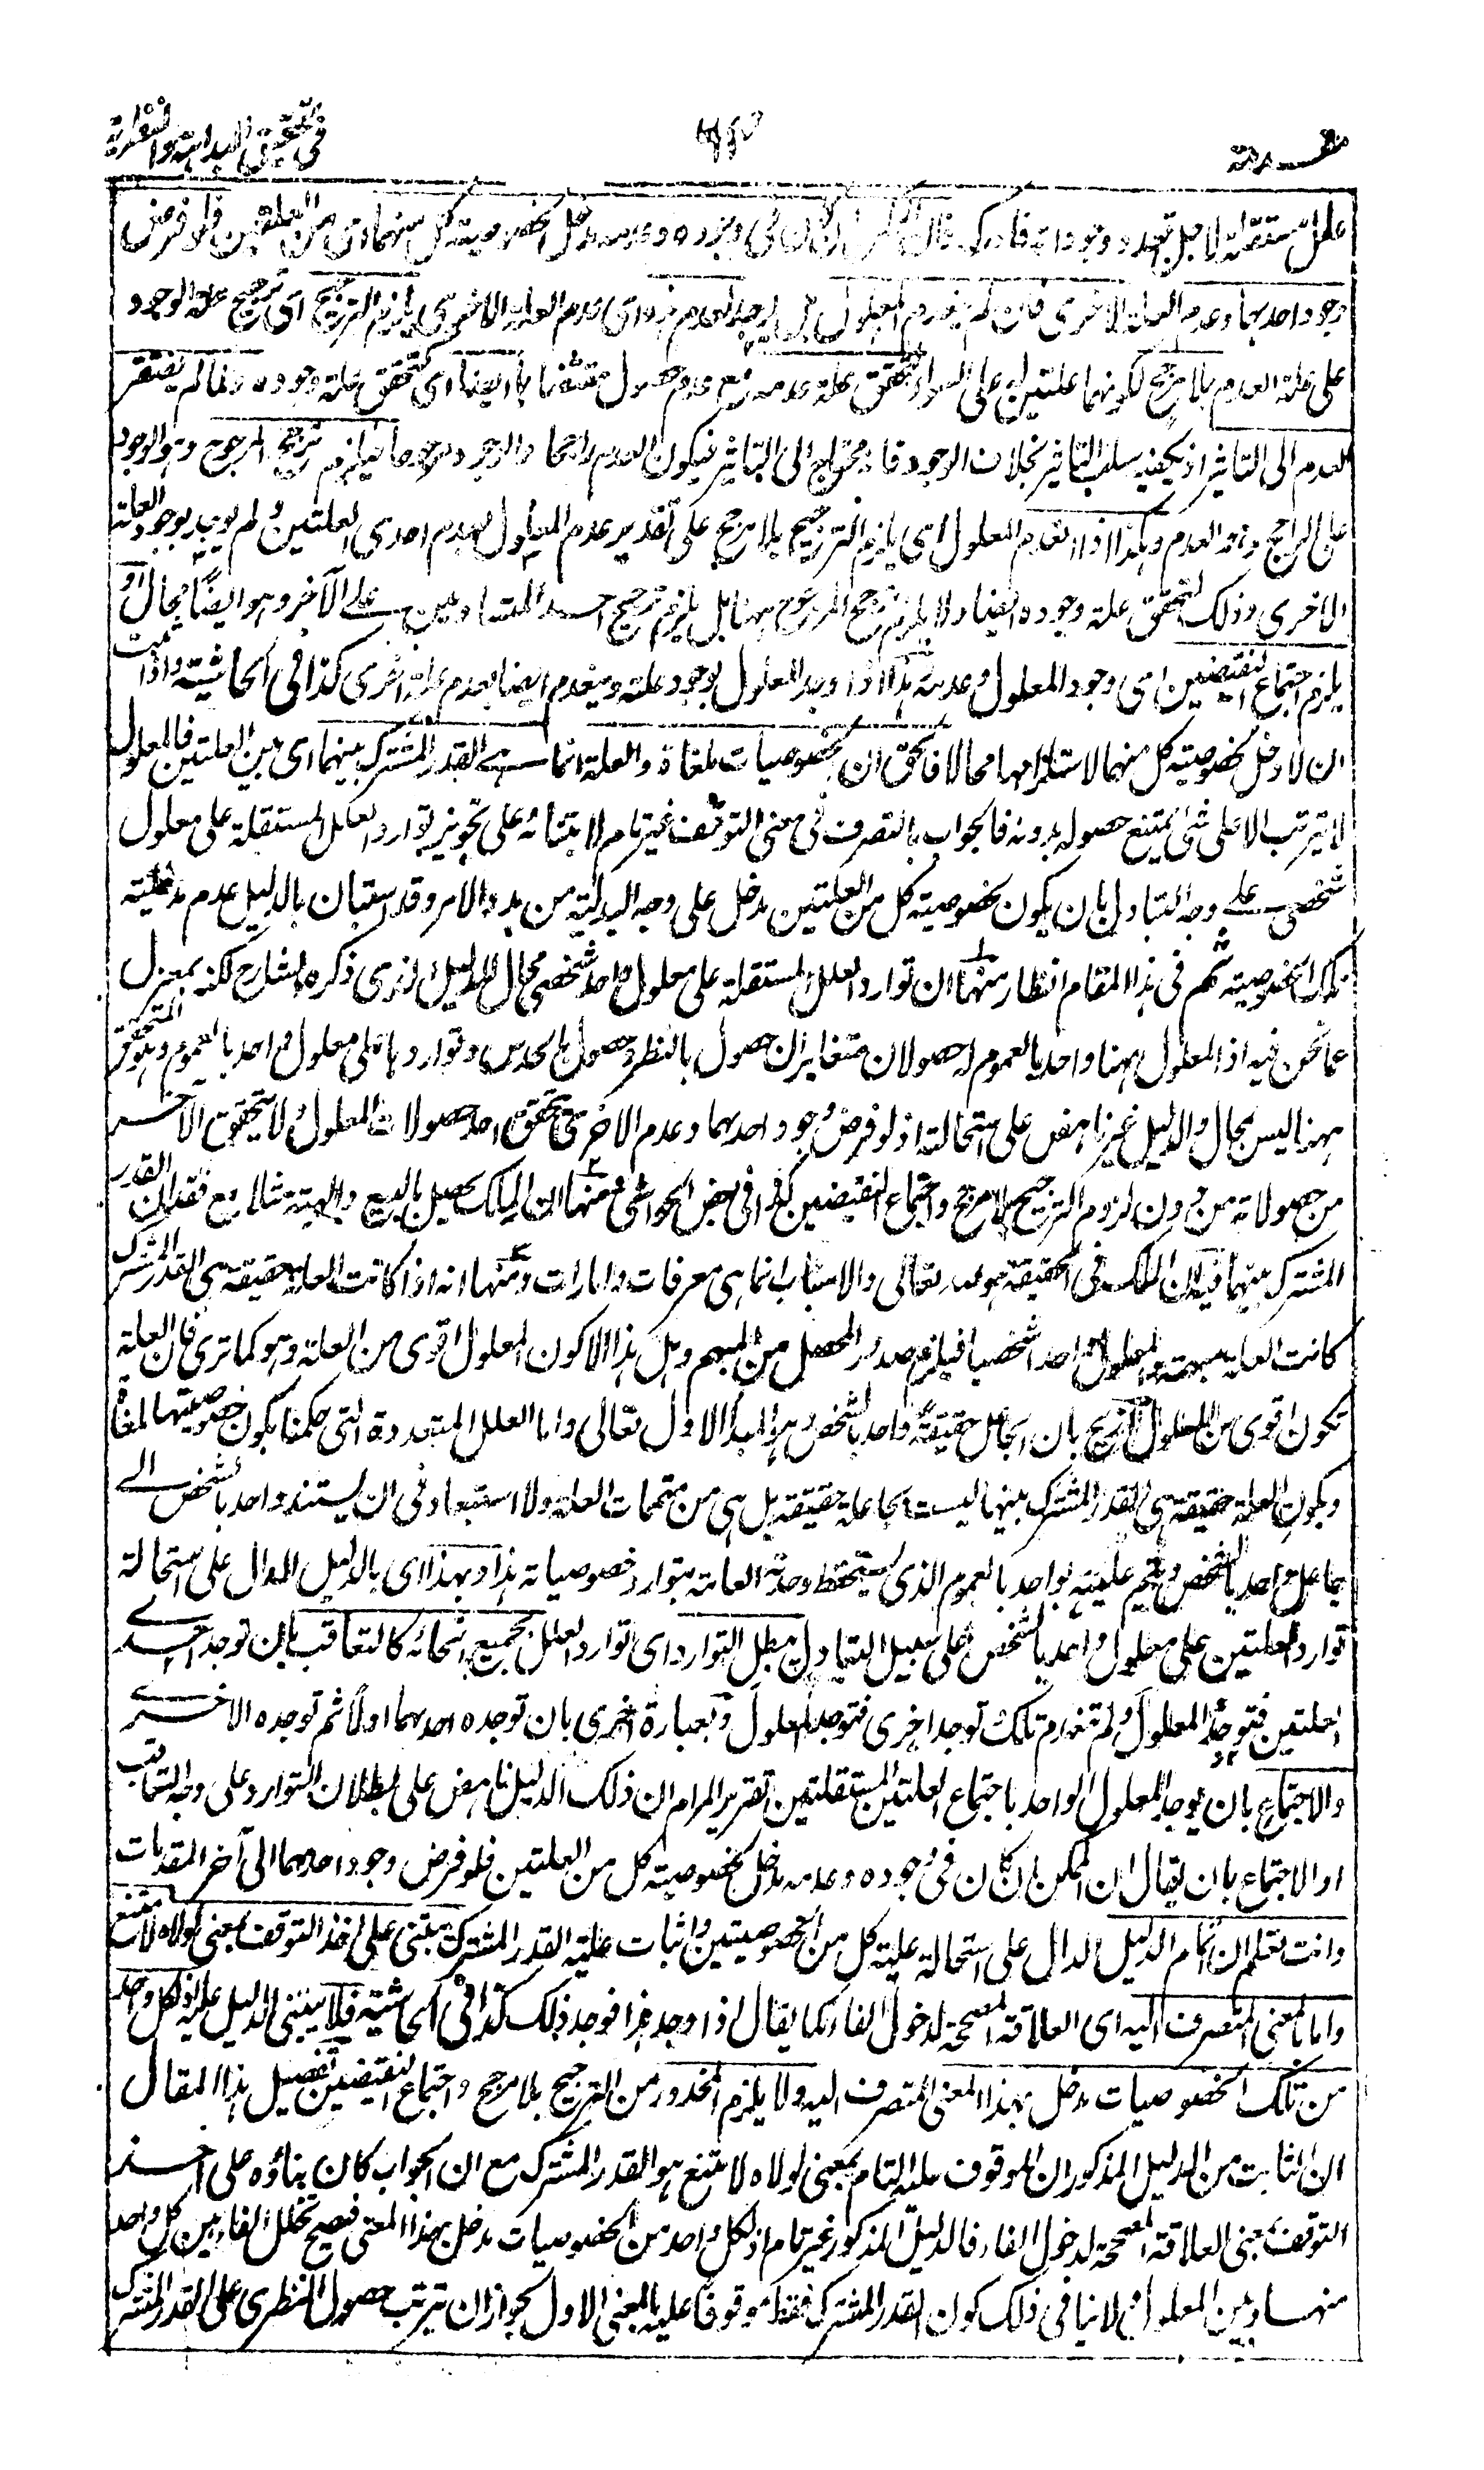 مقدمة
في تحقيق البداهة والنظرية
علل مستقلة لاجل تعدد وجوداته فادرك قال المكن ان كان في وجوده وعدمه مدخل لخصوصية كل منهما اى من العلتين فلو فرض
وجود احدهما وعدم العلة الاخرى فان لم ينعدم المعلول بل يوجد لعدم اى عدم العلة الاخرى يلزم الترجيح اى ترجيح علة الوجود
على علة العدم بلا مرجح لكونهما علتين على السواء لتحقق علة عدمه مع عدم حصول مقتضاها ايضا اى كتحقق علة وجوده ولما لم يفتقر
العدم الى التاثير اذ يكفيه سلب التاثير بخلاف الوجود فانه محتاج الى التاثير فيكون العدم راجحا والوجود مرجوحا فيلزم ترجيح المرجوح وهو الوجود
على الراجح وهو العدم وهكذا اذا انعدم المعلول اى يلزم الترجيح بلا مرجح على تقدير عدم المعلول بعدم احدى العلتين ولم يوجد بوجود العلة
الاخرى وذلك لتحقق علة وجوده ايضا ولا يلزم ترجيح المرجوح ههنا بل يلزم ترجيح احد المتساويين على الآخر وهو ايضًا محال او
يلزم اجتماع النقيضين اى وجود المعلول وعدمه هذا اذا وجد المعلول بوجود علته وينعدم ايضا بعدم علة اخرى كذا في الحاشية واذا ثبت
ان لا دخل لخصوصية كل منهما لاستلزامها محالا فالحق ان الخصوصيات ملغاة والعلة انما هي القدر المشترك بينهما اى بين العلتين فالمعلول
لا يترتب الا على شئ يمتنع حصوله بدونه فالجواب بالتصرف في معنى التوقف غير تام لابتنائه على تجويز توارد العلل المستقلة على معلول
شخصى على وجه التبادل بان يكون لخصوصية كل من العلتين مدخل على وجه البدلية من بدء الامر وقد استبان بالدليل عدم مدخلية
تلك الخصوصية ثم في هذا المقام انظار منها ان توارد العلل المستقلة على معلول واحد شخصى محال للدليل الذى ذكره الشارح لكنه بمعزل
عما نحن فيه اذ المعلول ههنا واحد بالعموم له حصولان متغايران حصول بالنظر وحصول بالحدس وتواردها على معلول واحد بالعموم وهو المتحقق
ههنا ليس بمحال والدليل غير ناهض على استحالته اذ لو فرض وجود احدهما وعدم الاخرى تحقق احد حصولات المعلول ولا يتحقق الآخر
من حصولاته من دون لزوم الترجيح بلا مرجح واجتماع النقيضين كذا في بعض الحواشى ومنها ان الملك يحصل بالبيع والهبة مثلا مع فقدان القدر
المشترك بينهما فيه ان الملك في الحقيقة هو لله تعالى والاسباب انما هى معرفات وامارات ومنها انه اذا كانت العلة حقيقة هى القدر المشترك
كانت العلة مبهمة والمعلول واحدا شخصيا فيلزم صدور المحصل من المبهم وهل هذا الا كون المعلول اقوى من العلة وهو كما ترى فان العلة
تكون اقوى من المعلول بان الجاعل حقيقة واحد بالشخص وهو المبدأ الاول تعالى واما العلل المتعددة التى حكمنا بكون خصوصيتها ملغاة
وبكون العلة حقيقة هى القدر المشترك بينها ليست بجاعلة حقيقة بل هى من متممات العلة ولا استبعاد في ان يستند واحد بالشخص الى
جاعل واحد بالشخص وتتم عليته بواحد بالعموم الذى يتحفظ وحدته العامة بتوارد خصوصياته هذا وبهذا اى بالدليل الدال على استحالة
توارد العلتين على معلول واحد بالشخص على سبيل التبادل يبطل التوارد اى توارد العلل بجميع انحائه كالتعاقب بان توجد احدى
العلتين فتوجد المعلول ولم تنعدم تلك توجد اخرى فتوجد المعلول وبعبارة اخرى بان توجده احدهما اولًا ثم توجده الاخرى
والاجتماع بان يوجد المعلول الواحد باجتماع العلتين المستقلتين تقرير المرام ان ذلك الدليل ناهض على بطلان التوارد على وجه التعاقب
او الاجتماع بان يقال ان الممكن ان كان في وجوده وعدمه مدخل لخصوصية كل من العلتين فلو فرض وجود احدهما الى آخر المقدمات
وانت تعلم ان تمام الدليل الدال على استحالة علية كل من الخصوصيتين واثبات علية القدر المشترك تبتنى على اخذ التوقف بمعنى لولاه لامتنع
واما بالمعنى المتصرف اليه اى العلاقة المصححة لدخول الفاء كما يقال اذا وجد هذا فوجد ذلك كذا في الحاشية فلا يبتنى الدليل عليه اذ لكل واحد
من تلك الخصوصيات مدخل بهذا المعنى المتصرف اليه ولا يلزم المحذور من الترجيح بلا مرجح واجتماع النقيضين تفصيل هذا المقال
ان الثابت من الدليل المذكور ان الموقوف عليه التام بمعنى لولاه لامتنع هو القدر المشترك مع ان الجواب كان بناؤه على اخذ
التوقف بمعنى العلاقة المصححة لدخول الفاء فالدليل المذكور غير تام اذ لكل واحد من الخصوصيات مدخل بهذا المعنى فيصح تخلل الفاء بين كل واحد
منهما وبين المعلول ولا ينافى ذلك كون القدر المشترك فقط موقوفا عليه بالمعنى الاول لجواز ان يترتب حصول النظرى على القدر المشترك